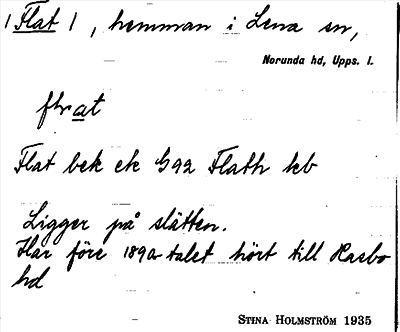 1 Flat 1, hemman i Lena sn,
Norunda hd, Upps. l.
flat
Flat bek ek G92 Flath kb
Ligger på slätten.
Har före 1890-talet hört till Rasbo
hd
STINA HOLMSTRÖM 1935